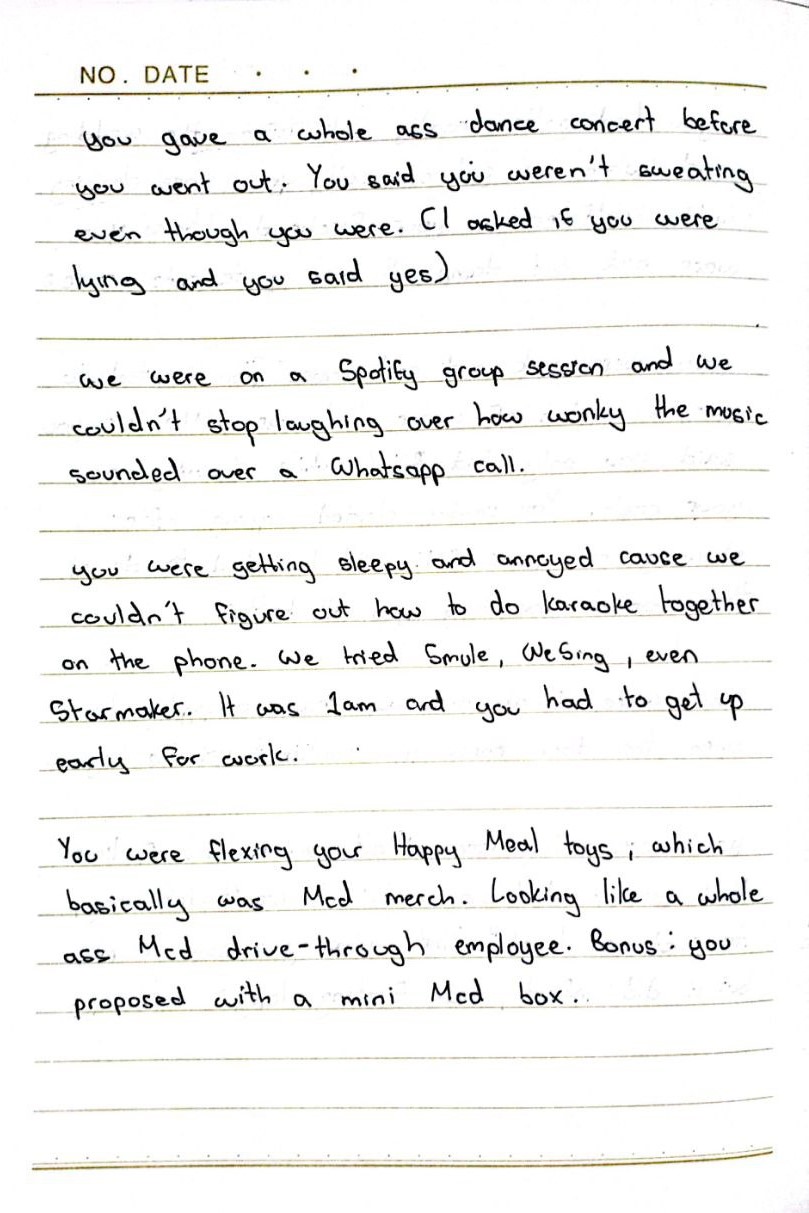 NO. DATE . . .
you gave a whole ass dance concert before
you went out. You said you weren't sweating
even though you were. (I asked if you were
lying and you said yes)
we were on a Spotify group session and we
couldn't stop laughing over how wonky the music
sounded over a Whatsapp call.
you were getting sleepy and annoyed cause we
couldn't figure out how to do karaoke together
on the phone. We tried Smule, WeSing, even
Starmaker. It was 1am and you had to get up
early for work.
You were flexing your Happy Meal toys, which
basically was Mcd merch. Looking like a whole
ass Mcd drive-through employee. Bonus: you
proposed with a mini Mcd box.